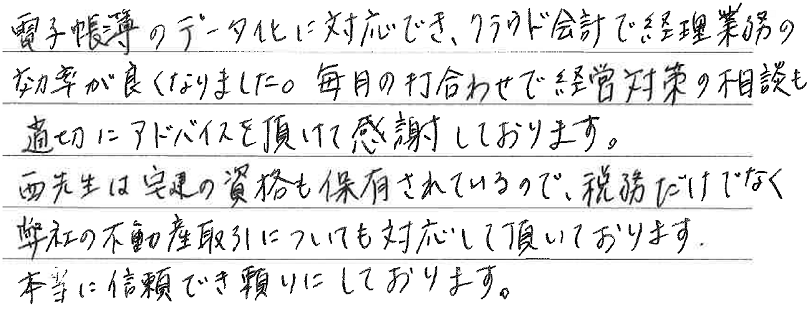 電子帳簿のデータ化に対応でき、クラウド会計で経理業務の
効率が良くなりました。毎月の打合わせで経営対策の相談も
適切にアドバイスを頂けて感謝しております。
西先生は宅建の資格も保有されているので、税務だけでなく
弊社の不動産取引についても対応して頂いております.
本当に信頼でき頼りにしております。